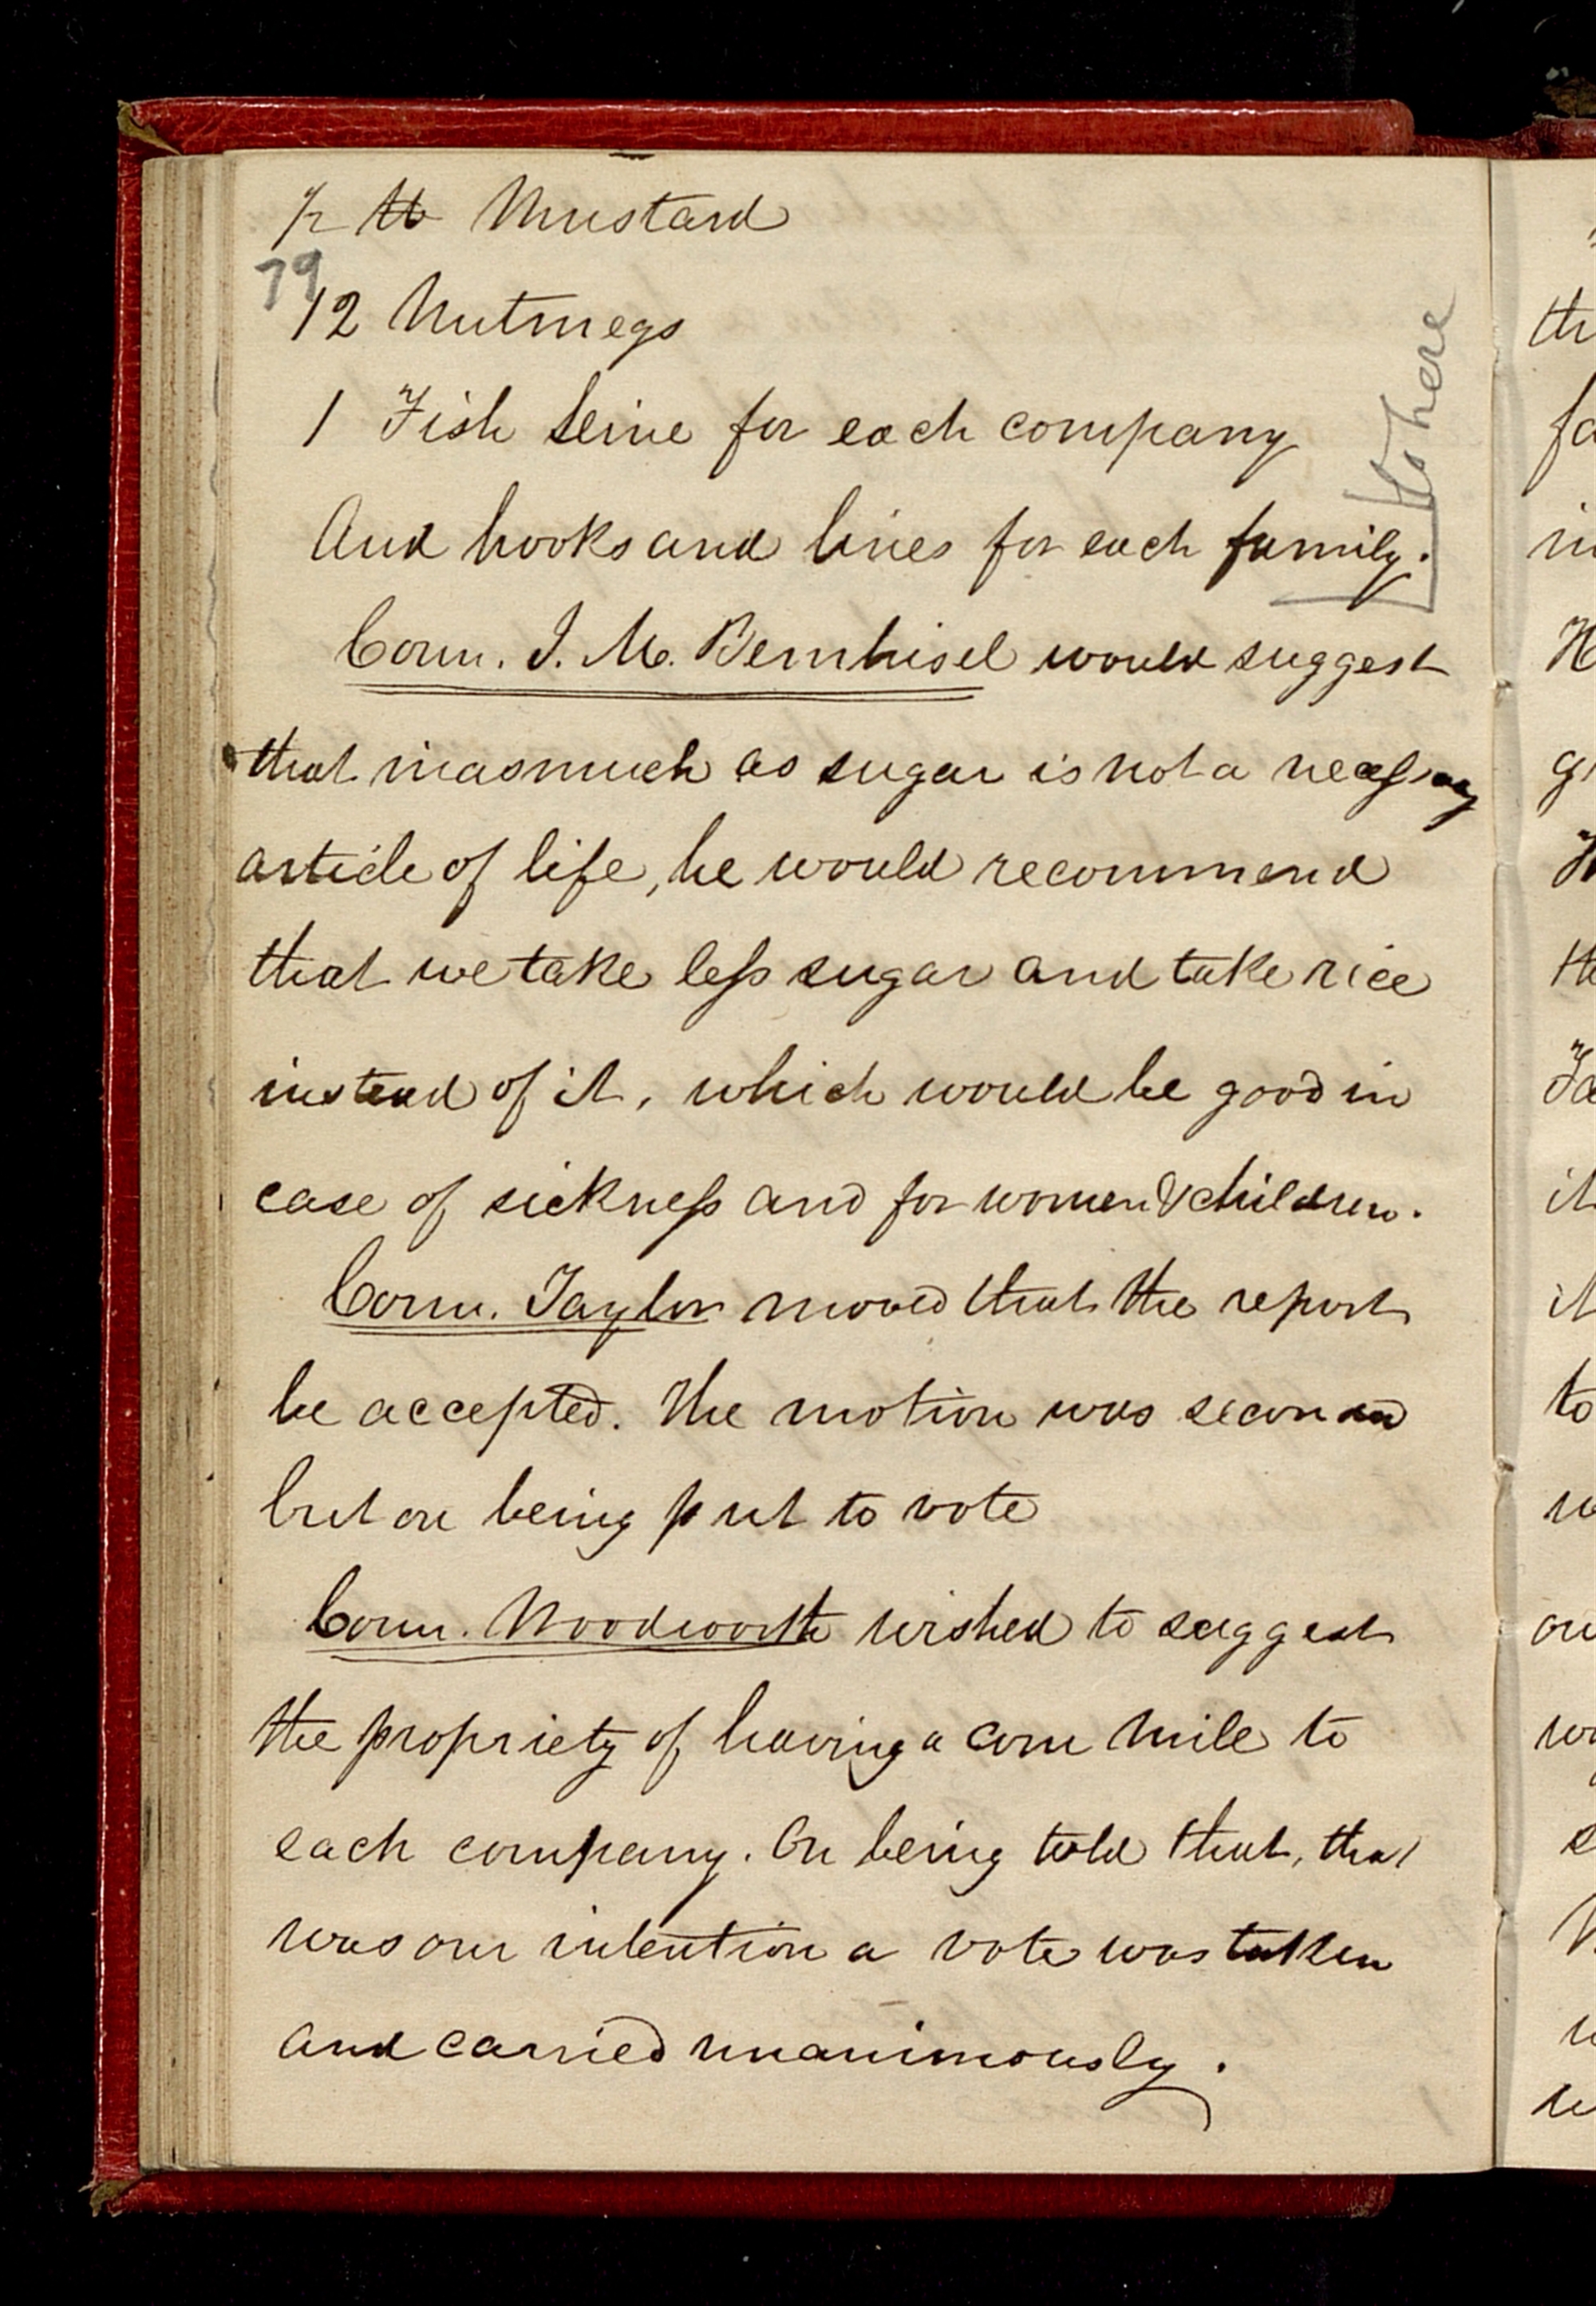 ½ lb Mustard
79
12 Nutmegs
1 Fish Seine for each company
And hooks and lines for each family.
to here
Coun. J. M. Bernhisel would suggest
that inasmuch as sugar is not a necessary
article of life, he would recommend
that we take less sugar and take rice
instead of it, which would be good in
case of sickness and for women & children.
Coun. Taylor moved that the report
be accepted. The motion was second
but on being put to vote
Coun. Woodworth wished to suggest
the propriety of having a corn mile to
each company. On being told that, that
was our intention a vote was taken
and carried unanimously.